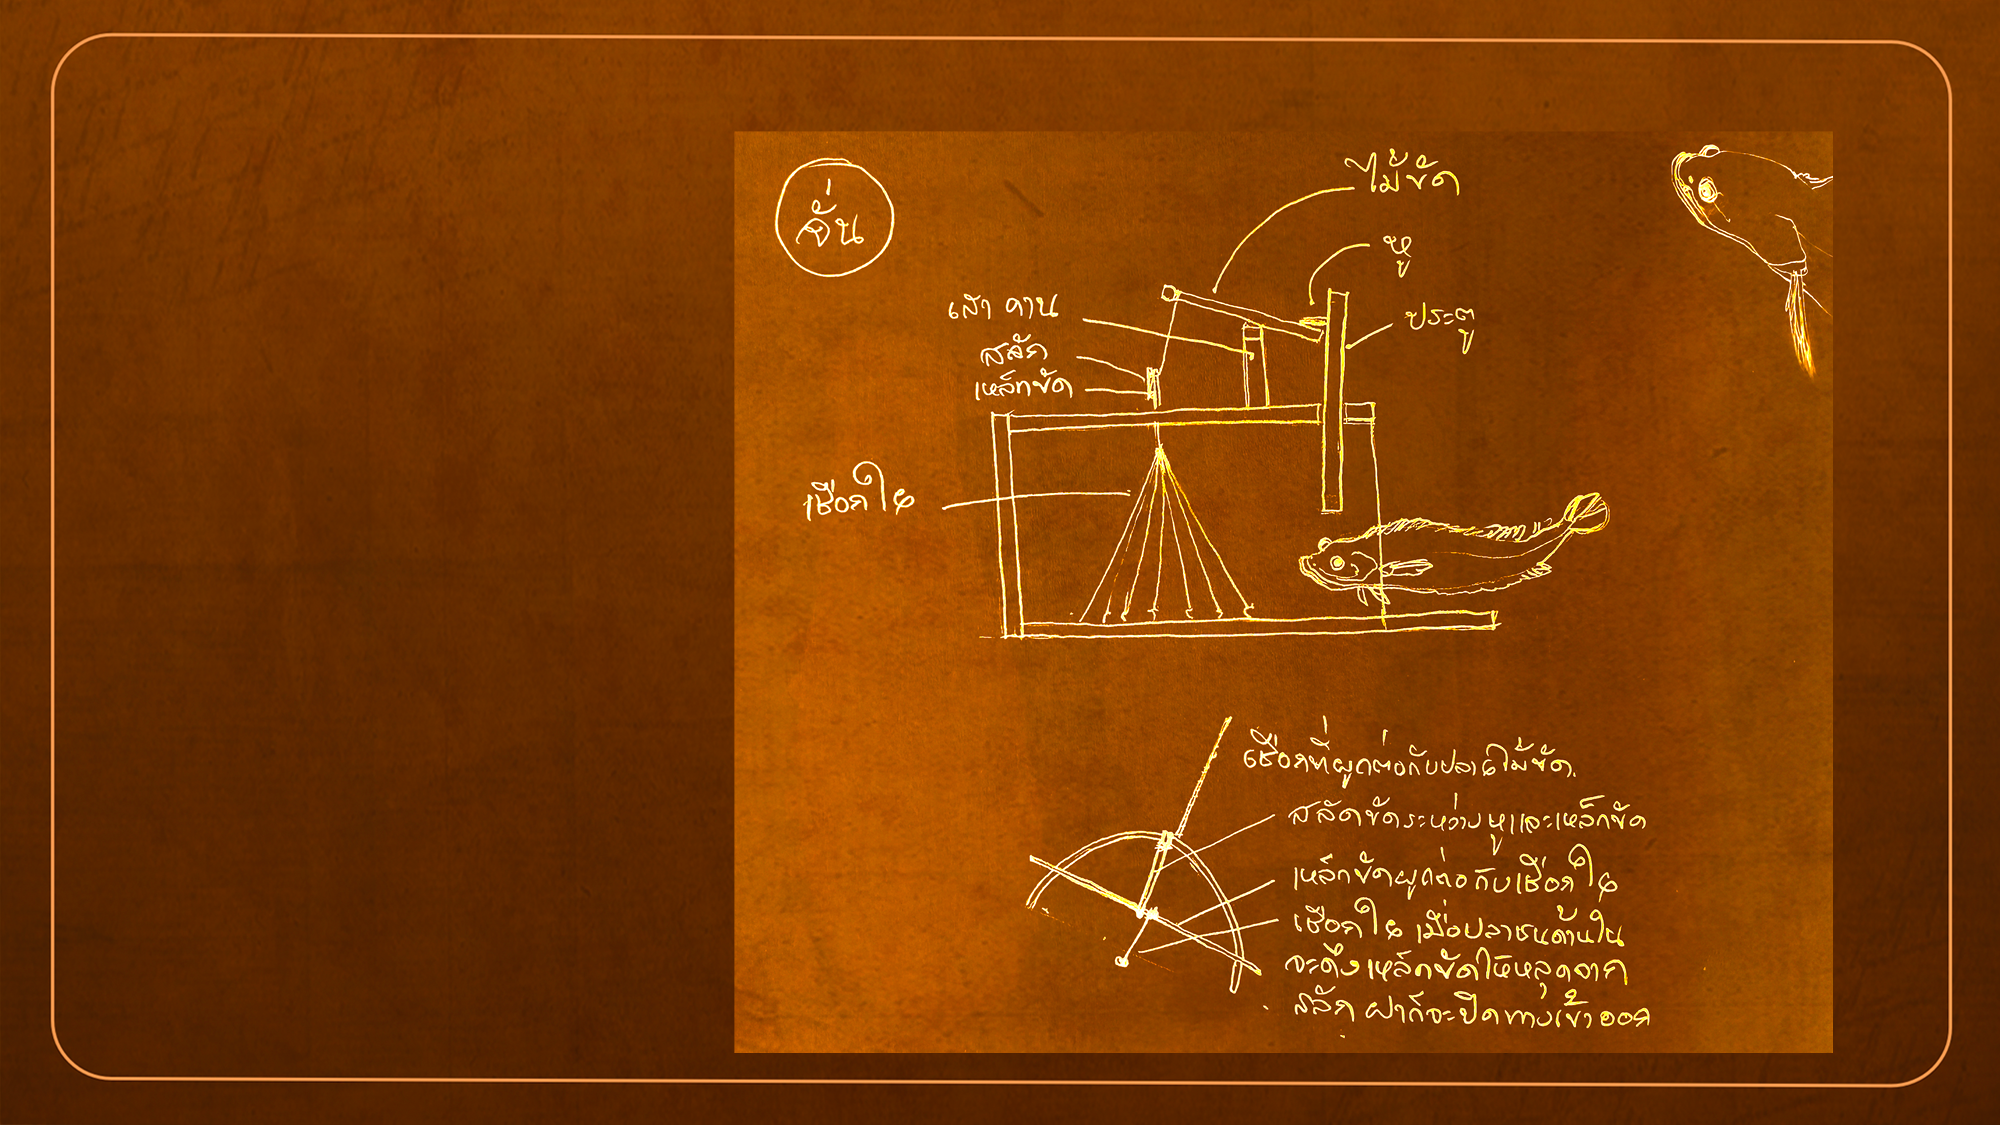 จั่น
ไม้ขัด
หู
เสา คาน
ประตู
สลัก
เหล็กขัด
เชือกใย
เชือกที่ผูกต่อกับปลายไม้ขัด
สลัดขัดระหว่างหูและเหล็กขัด
เหล็กขัดผูกต่อกับเชือกใย
เชือกใย เมื่อปลาชนด้านใน
จะดึงเหล็กขัดให้หลุดจาก
สลัก ฝาก็จะปิดทางเข้าออก